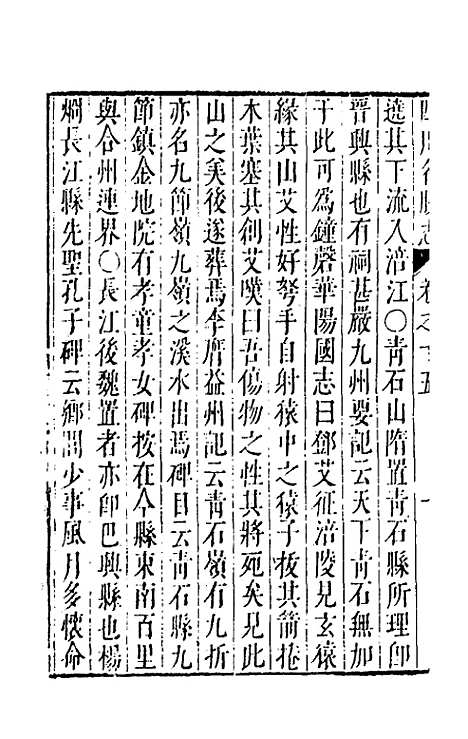 卷之十五
遶其下流入涪江〇靑石山隋置靑石縣所理卽
晉興縣也有祠甚嚴九州要記云天下靑石無加
于此可爲鐘磬華陽國志曰鄧艾征涪陵見玄猿
緣其山艾性好弩手自射猿中之猿子拔其箭捲
木葉塞其創艾嘆曰吾傷物之性其將死矣見此
山之矣後遂葬焉李膺益州記云靑石嶺有九折
亦名九節嶺九嶺之溪水出焉碑目云靑石縣九
節鎮金地院有孝童孝女碑按在今縣東南百里
與合州連界〇長江後魏置者亦卽巴興縣也楊
烱長江縣先聖孔子碑云鄉閭少事風月多懷命